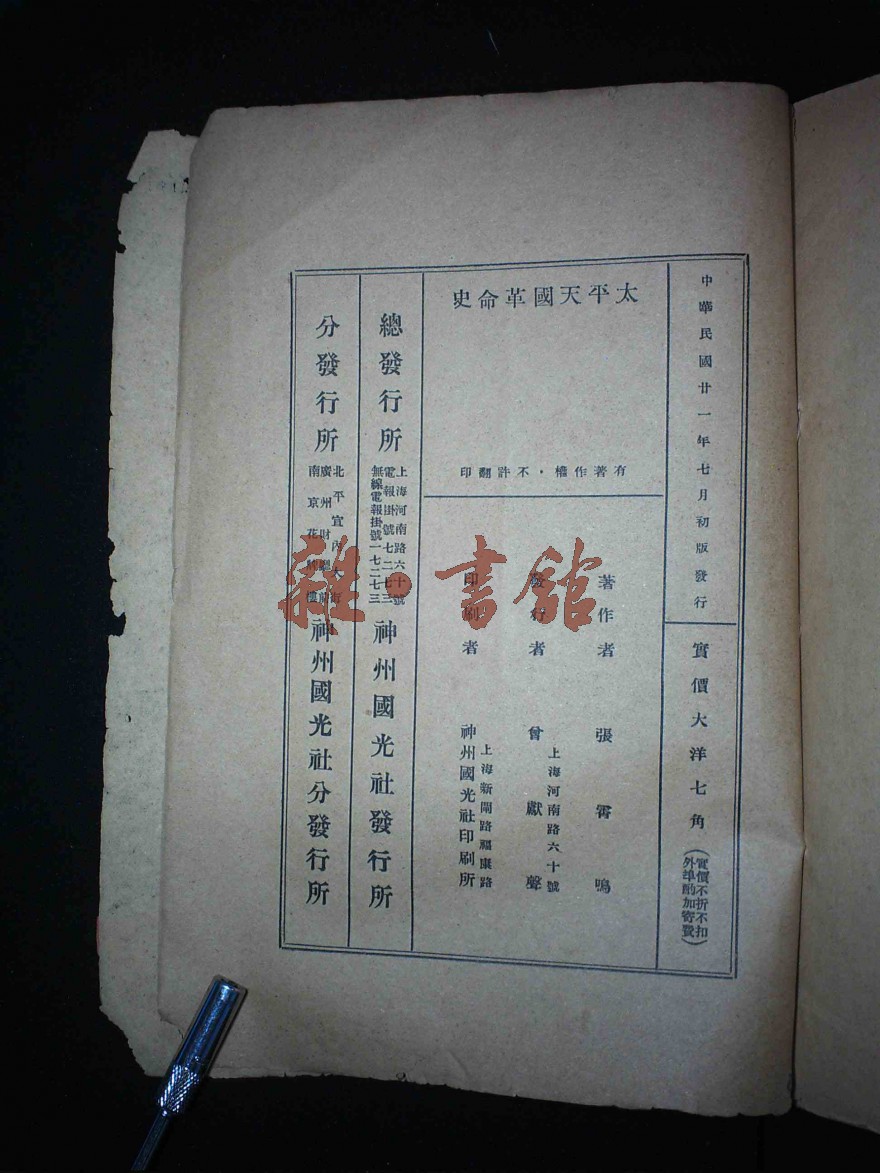 中華民國廿一年七月初版發行
實價大洋七角
(實價不折不扣
外埠酌加寄費)
太平天國革命史
有著作權・不許翻印
著作者 張霄鳴
發行者 曾獻聲
上海河南路六十號
印刷者 神州國光社印刷所
上海新閘路福康路
總發行所
上海河南路六十號
電報掛號七二七三
無線電報掛號一七二七三
神州國光社發行所
分發行所
北平宣內大街
廣州財廳前
南京花牌樓
神州國光社分發行所
雜・書館